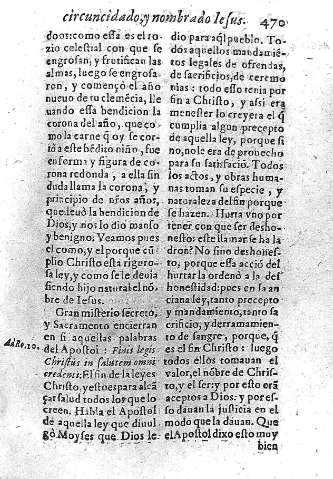 circuncidado, y nombrado Iesus. 470
doos: como esta es el ro-
zio celestial con que se
engrosan, y frutifican las
almas, luego se engrosa-
ron, y començò el año
nuevo de su clemẽcia, lle
uando essa bendicion la
corona del año, que co-
mo la carne q̃ oy se cor-
tò a este bẽdito niño, fue
en forma y figura de co-
rona redonda, a ella sin
duda llama la corona, y
principio de nr̃os años,
que lleuò la bendicion de
Dios, y nos lo dio manso
y benigno. Veamos pues
el como, y el porque cũ-
plio Christo esta riguro-
sa ley, y como se le deuia
siendo hijo natural el nõ-
bre de Iesus.
Gran misterio secreto,
y Sacramento encierran
en si aquellas palabras
del Apostol: Finis legis
Christus in salutem omni
credenti: El fin de la ley es
Christo, y este es para alcã
çar salud todos los que lo
creen. Habla el Apostol
de aquella ley que diuul-
gò Moyses que Dios le
dio para aq̃l pueblo. To-
dos aquellos mandamiẽ-
tos legales de ofrendas,
de sacrificios, de ceremo
nias: todo esso tenia por
fin a Christo, y assi era
menester lo creyera el q̃
cumplia algun precepto
de aquella ley, porque si
no, no le era de prouecho
para su satisfaciõ. Todos
los actos, y obras huma-
nas toman su especie, y
naturaleza del fin porque
se hazen. Hurta vno por
tener con que ser desho-
nesto: este llamarseha la-
dron? No sino deshones-
to, porque essa acciõ del
hurtar la ordenò a la des
honestidad: pues en la an
ciana ley, tanto precepto
y mandamiento, tanto sa
crificio, y derramamien-
to de sangre, porque, q̃
es el fin Christo: luego
todos ellos tomauan el
valor, el nõbre de Chris-
to, y el ser: y por esto erã
aceptos a Dios: y por es-
so dauan la justicia en el
modo que la dauan. Que
el Apostol dixo esto muy
bien